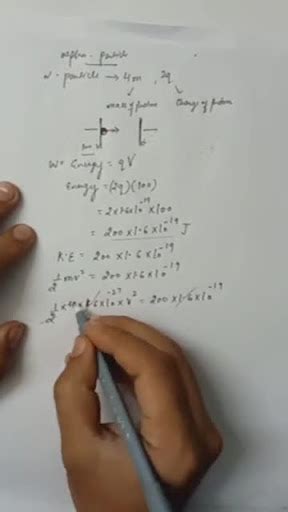 alpha - particle
α - particle → 4m , 2q
mass of proton Charge of proton
W = Energy = qV
Energy = (2q)(100)
= 2x1.6x10⁻¹⁹ x100
= 200 x1.6x10⁻¹⁹ J
K.E = 200 x1.6x10⁻¹⁹
1/2 mv² = 200 x1.6x10⁻¹⁹
1/2 x 4 x 1.6x10⁻²⁷ x v² = 200 x1.6x10⁻¹⁹